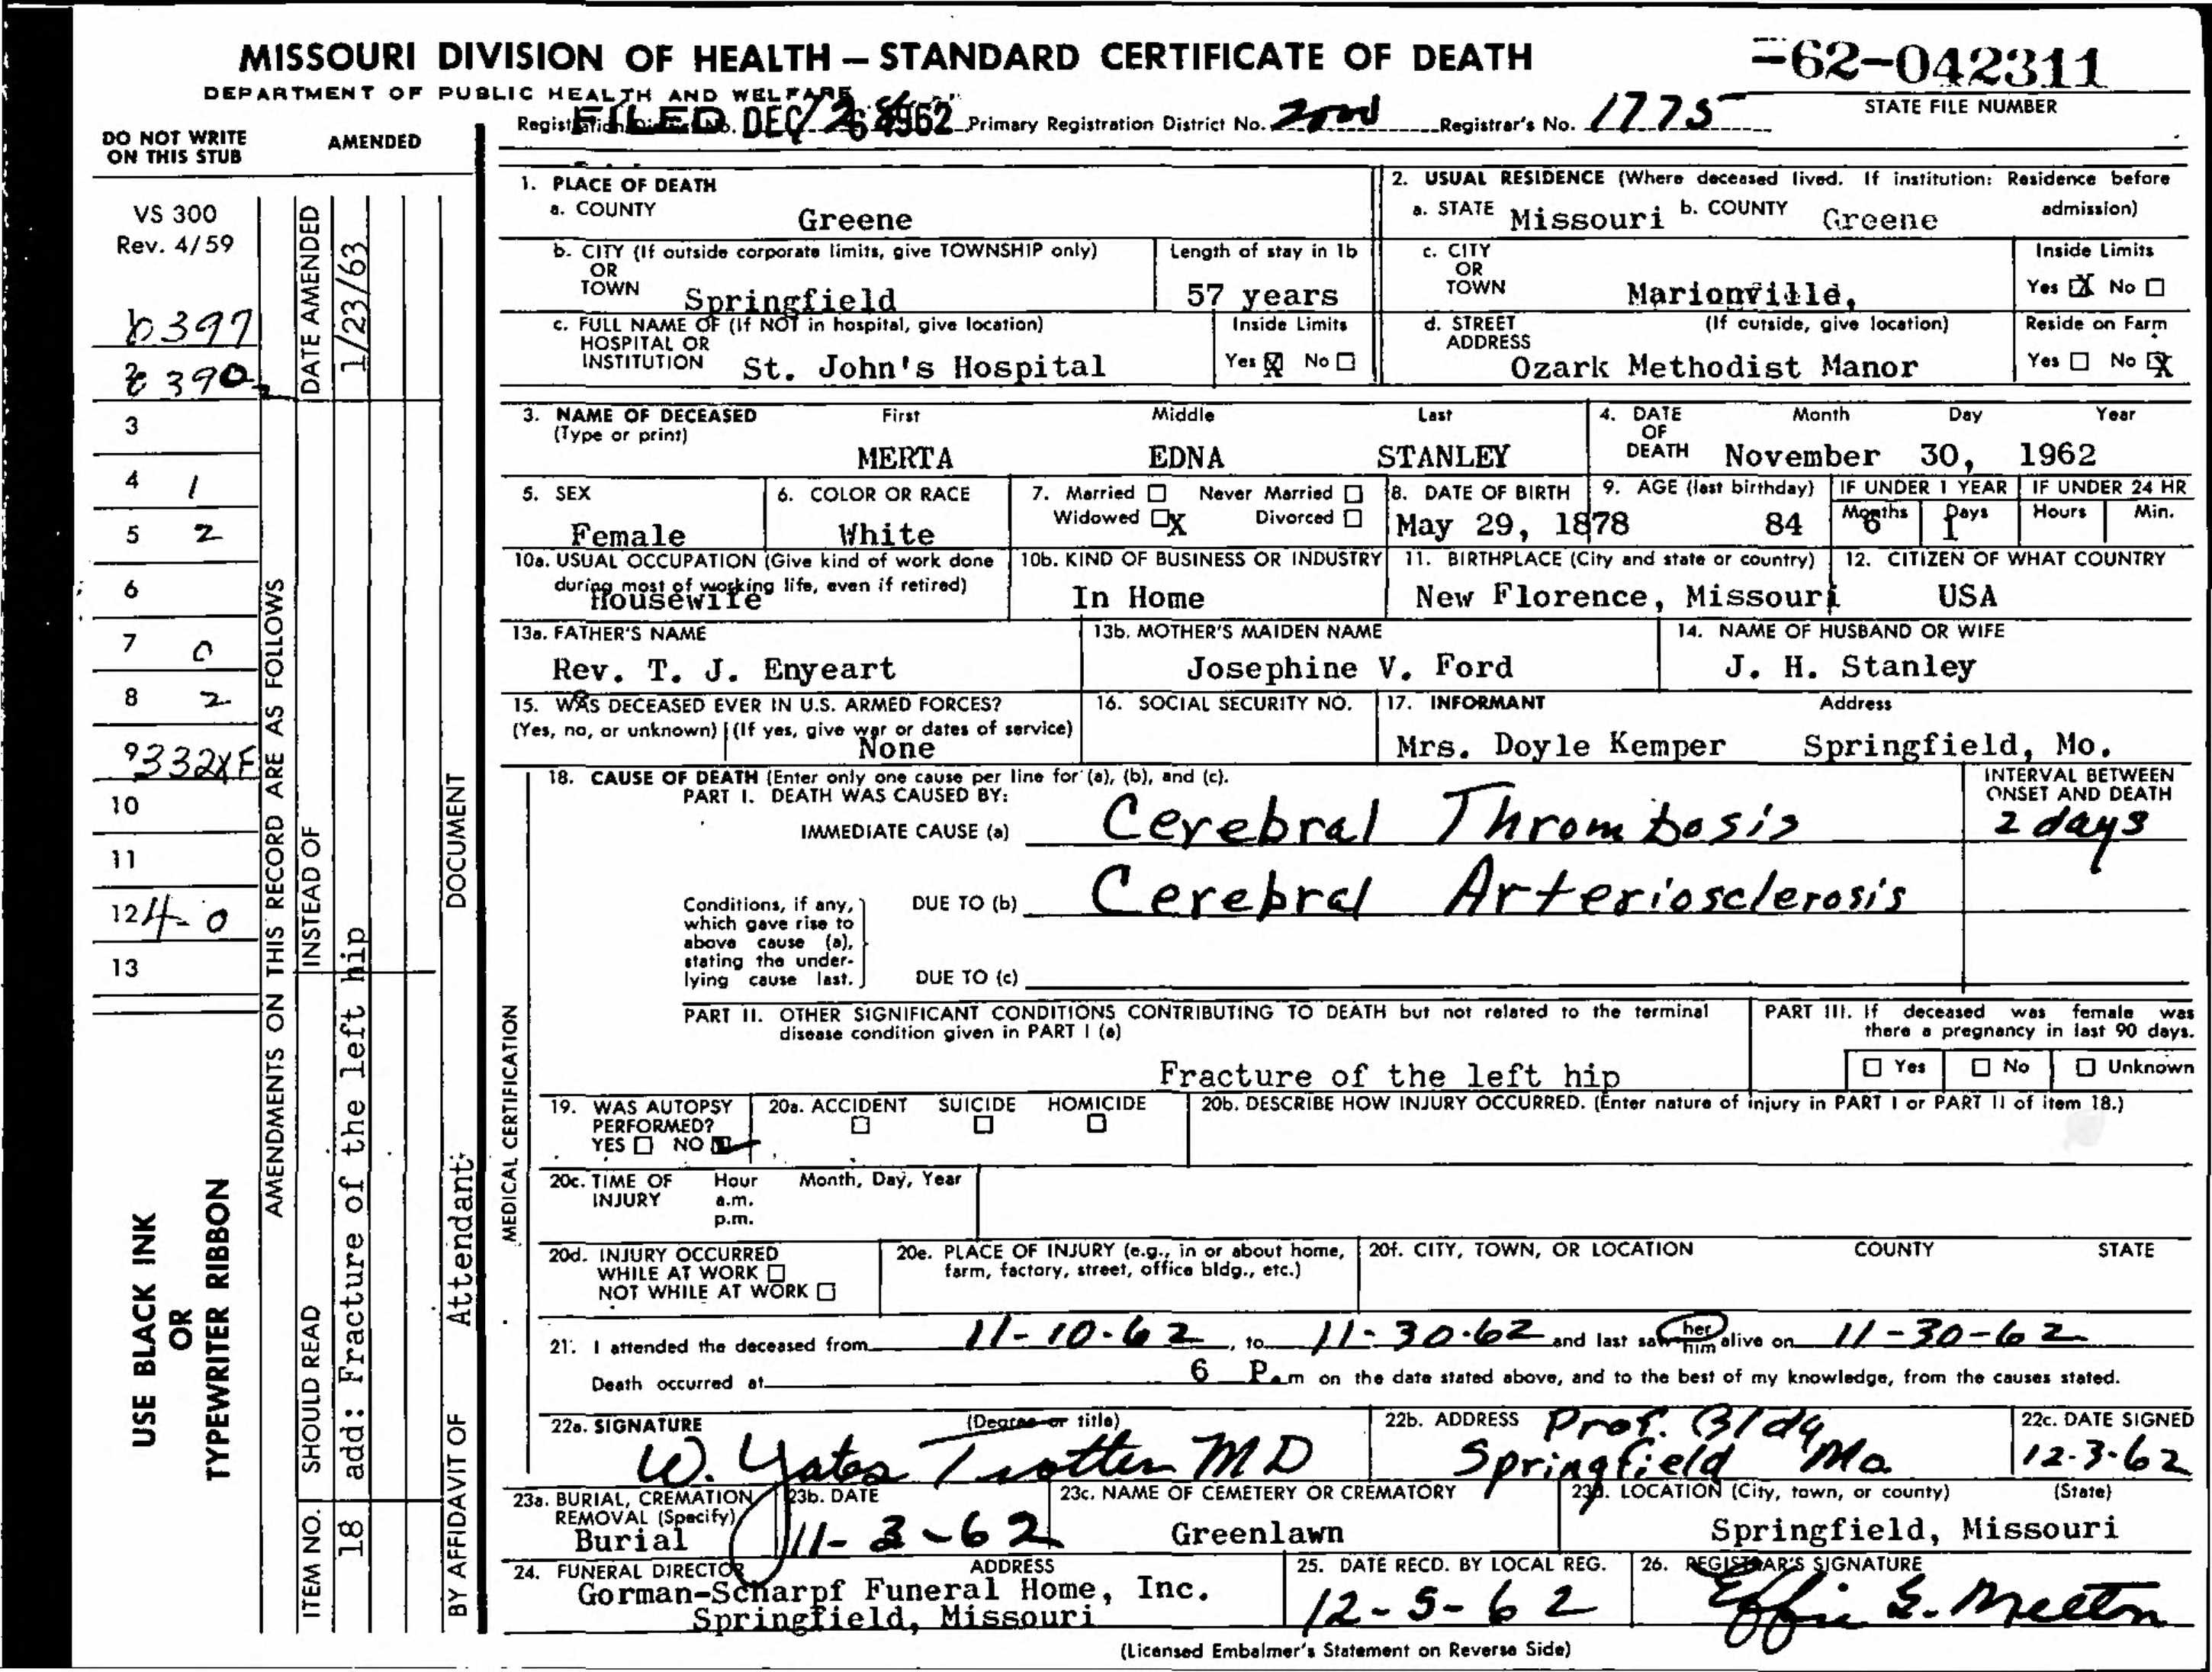 MISSOURI DIVISION OF HEALTH — STANDARD CERTIFICATE OF DEATH
-62-042311
DEPARTMENT OF PUBLIC HEALTH AND WELFARE
STATE FILE NUMBER
FILED DEC 1962 Primary Registration District No. 2nd Registrar's No. 1775
DO NOT WRITE
ON THIS STUB
AMENDED
VS 300
Rev. 4/59
6397
2 390
3
4 1
5 2
6
7 0
8 2
9 332XF
10
11
12 4-0
13
USE BLACK INK
OR
TYPEWRITER RIBBON
AMENDMENTS ON THIS RECORD ARE AS FOLLOWS
DATE AMENDED 1/23/63
INSTEAD OF
SHOULD READ add: Fracture of the left hip
ITEM NO. 18
DOCUMENT
BY AFFIDAVIT OF Attendant
1. PLACE OF DEATH
a. COUNTY Greene
b. CITY (If outside corporate limits, give TOWNSHIP only)
OR
TOWN Springfield
Length of stay in 1b
57 years
c. FULL NAME OF (If NOT in hospital, give location)
HOSPITAL OR
INSTITUTION St. John's Hospital
Inside Limits
Yes X No
2. USUAL RESIDENCE (Where deceased lived. If institution: Residence before
admission)
a. STATE Missouri b. COUNTY Greene
c. CITY
OR
TOWN Marionville,
Inside Limits
Yes X No
d. STREET (If outside, give location)
ADDRESS Ozark Methodist Manor
Reside on Farm
Yes No X
3. NAME OF DECEASED First Middle Last
(Type or print)
MERTA EDNA STANLEY
4. DATE Month Day Year
OF
DEATH November 30, 1962
5. SEX
Female
6. COLOR OR RACE
White
7. Married Never Married
Widowed X Divorced
8. DATE OF BIRTH
May 29, 1878
9. AGE (last birthday)
84
IF UNDER 1 YEAR
Months Days
6 1
IF UNDER 24 HR
Hours Min.
10a. USUAL OCCUPATION (Give kind of work done
during most of working life, even if retired)
Housewife
10b. KIND OF BUSINESS OR INDUSTRY
In Home
11. BIRTHPLACE (City and state or country)
New Florence, Missouri
12. CITIZEN OF WHAT COUNTRY
USA
13a. FATHER'S NAME
Rev. T. J. Enyeart
13b. MOTHER'S MAIDEN NAME
Josephine V. Ford
14. NAME OF HUSBAND OR WIFE
J. H. Stanley
15. WAS DECEASED EVER IN U.S. ARMED FORCES?
(Yes, no, or unknown) (If yes, give war or dates of service)
None
16. SOCIAL SECURITY NO.
17. INFORMANT Address
Mrs. Doyle Kemper Springfield, Mo.
MEDICAL CERTIFICATION
18. CAUSE OF DEATH (Enter only one cause per line for (a), (b), and (c).
PART I. DEATH WAS CAUSED BY:
INTERVAL BETWEEN
ONSET AND DEATH
IMMEDIATE CAUSE (a) Cerebral Thrombosis 2 days
Conditions, if any,
which gave rise to
above cause (a),
stating the under-
lying cause last.
DUE TO (b) Cerebral Arteriosclerosis
DUE TO (c)
PART II. OTHER SIGNIFICANT CONDITIONS CONTRIBUTING TO DEATH but not related to the terminal
disease condition given in PART I (a)
Fracture of the left hip
PART III. If deceased was female was
there a pregnancy in last 90 days.
Yes No Unknown
19. WAS AUTOPSY
PERFORMED?
YES NO
20a. ACCIDENT SUICIDE HOMICIDE
20b. DESCRIBE HOW INJURY OCCURRED. (Enter nature of injury in PART I or PART II of item 18.)
20c. TIME OF INJURY Hour Month, Day, Year
a.m.
p.m.
20d. INJURY OCCURRED
WHILE AT WORK
NOT WHILE AT WORK
20e. PLACE OF INJURY (e.g., in or about home,
farm, factory, street, office bldg., etc.)
20f. CITY, TOWN, OR LOCATION COUNTY STATE
21. I attended the deceased from 11-10-62, to 11-30-62 and last saw her him alive on 11-30-62
Death occurred at 6 P.m on the date stated above, and to the best of my knowledge, from the causes stated.
22a. SIGNATURE (Degree or title)
W. Yates Trotter MD
22b. ADDRESS Prof. Bldg
Springfield Mo.
22c. DATE SIGNED
12-3-62
23a. BURIAL, CREMATION,
REMOVAL (Specify)
Burial
23b. DATE
11-3-62
23c. NAME OF CEMETERY OR CREMATORY
Greenlawn
23d. LOCATION (City, town, or county) (State)
Springfield, Missouri
24. FUNERAL DIRECTOR ADDRESS
Gorman-Scharpf Funeral Home, Inc.
Springfield, Missouri
25. DATE RECD. BY LOCAL REG.
12-5-62
26. REGISTRAR'S SIGNATURE
Effie E. Meeton
(Licensed Embalmer's Statement on Reverse Side)